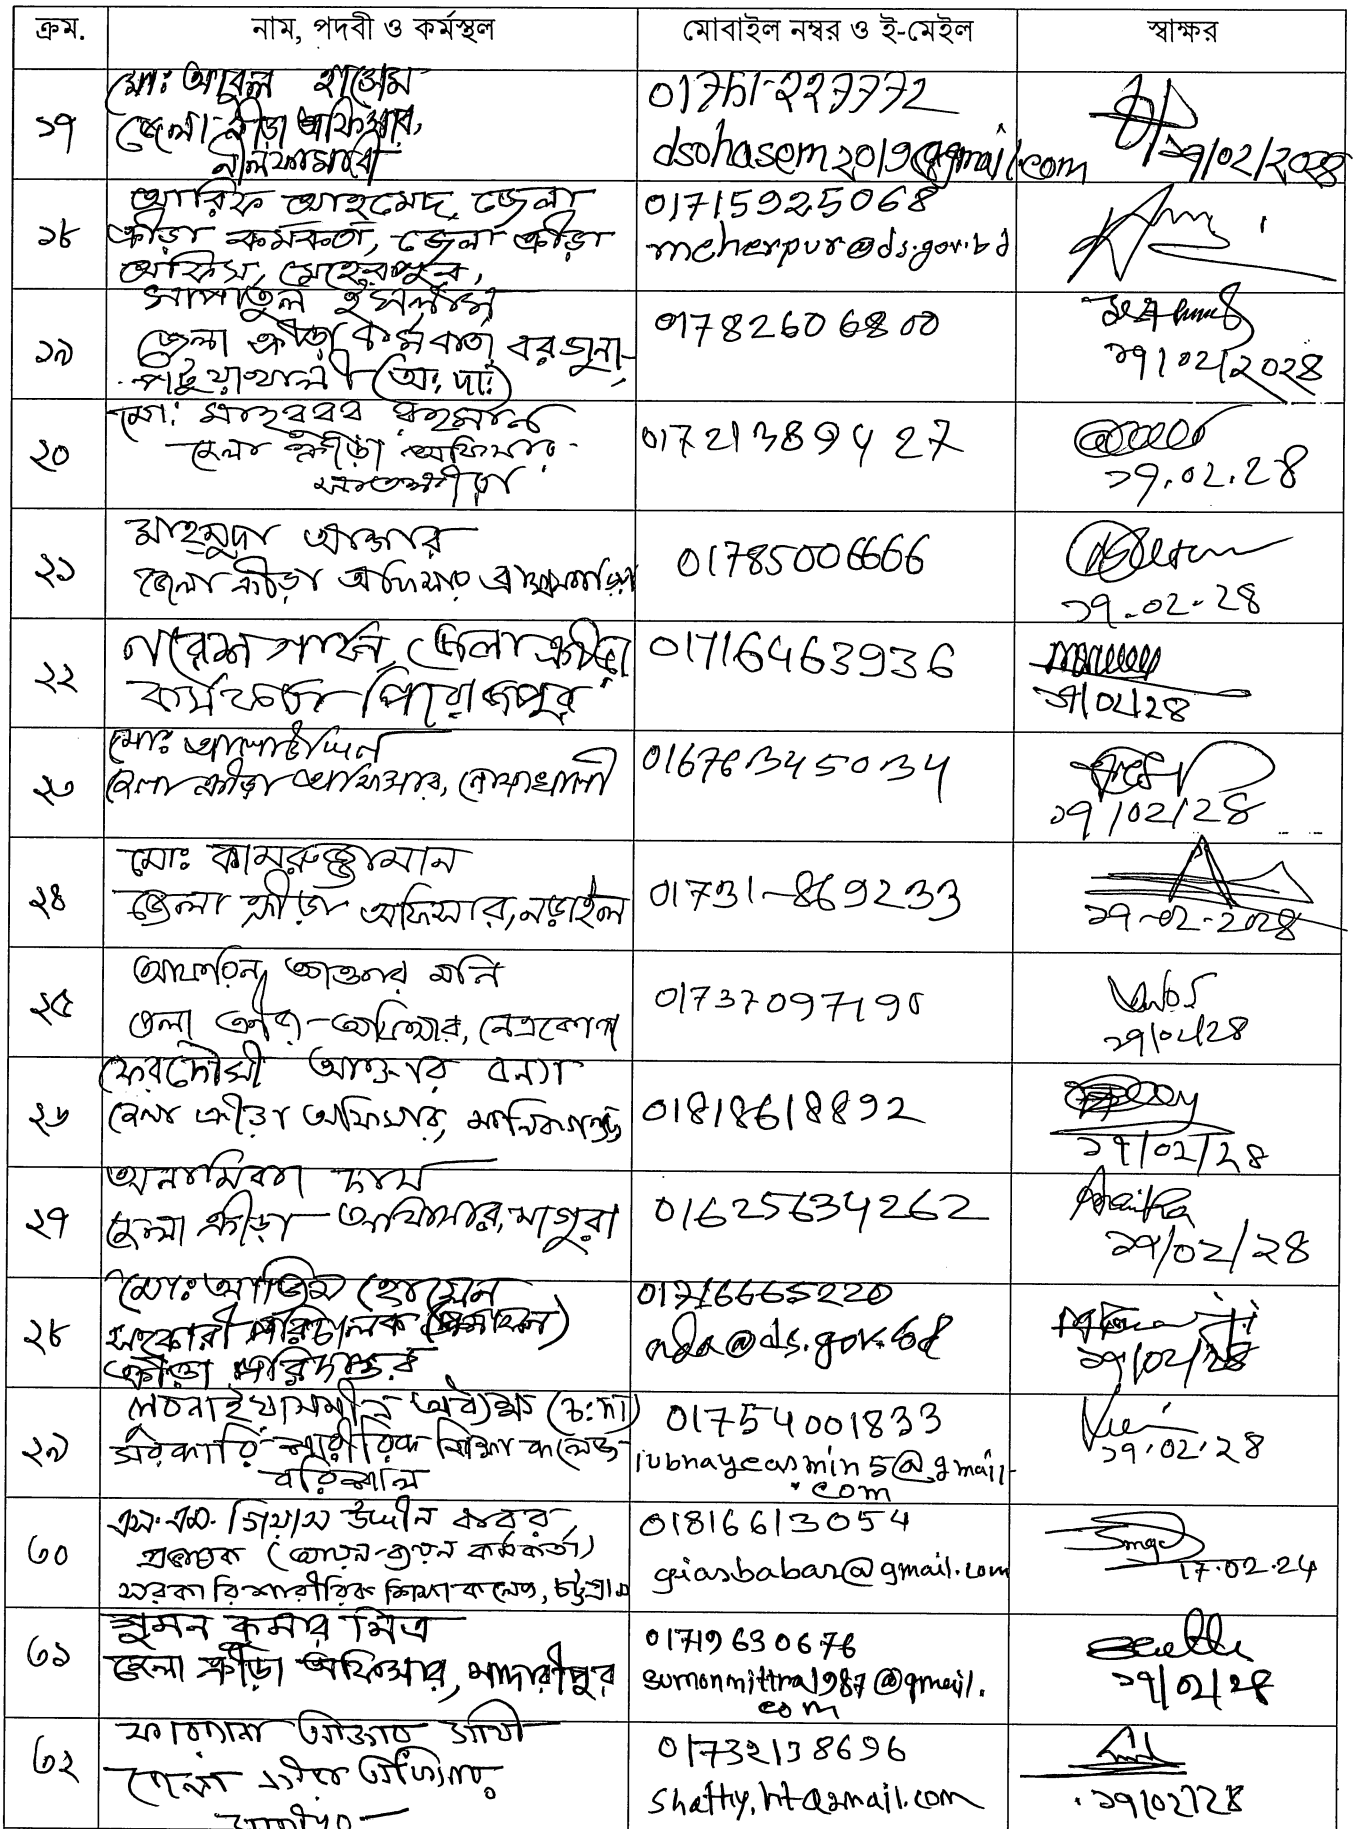 ক্রম. নাম, পদবী ও কর্মস্থল মোবাইল নম্বর ও ই-মেইল স্বাক্ষর
মোঃ আবুল হাসেম
জেলা ক্রীড়া অফিসার,
নীলফামারী
১৭
01751-227772
dsohasem2019@gmail.com
১৭/02/2028
আরিফ আহমেদ, জেলা
ক্রীড়া কর্মকর্তা, জেলা ক্রীড়া
অফিস, মেহেরপুর,
১৮
01715925068
meherpur@ds.gov.bd
ইসলাম
জেলা ক্রীড়া কর্মকর্তা, বরগুনা,
পটুয়াখালী (অঃ দাঃ)
১৯
01782606800
১৭/02/২০২৪
মো: মাহবুবুর রহমান
জেলা ক্রীড়া অফিসার
সাতক্ষীরা
২০
01721389427
১৭.02.২৪
মাহমুদা আক্তার
জেলা ক্রীড়া অফিসার ব্রাহ্মণবাড়িয়া
২১
01785006666
১৭-02-২৪
জেলা ক্রীড়া
কর্মকর্তা পিরোজপুর
২২
01716463936
১৭/02/২৪
মোঃ আলাউদ্দিন
জেলা ক্রীড়া অফিসার, নোয়াখালী
২৩
01676345034
১৭/02/২৪
মোঃ কামরুজ্জামান
জেলা ক্রীড়া অফিসার, নড়াইল
২৪
01731-869233
১৭-০২-২০২৪
আফরিন আক্তার মনি
জেলা ক্রীড়া অফিসার, নেত্রকোণা
২৫
01737097190
১৭/০২/২৪
ফেরদৌসী আক্তার বন্যা
জেলা ক্রীড়া অফিসার, মানিকগঞ্জ
২৬
01818618892
১৭/০২/২৪
অনামিকা দাস
জেলা ক্রীড়া অফিসার, মাগুরা
২৭
01625634262
১৭/০২/২৪
মোঃ আজিম হোসেন
সহকারী পরিচালক (প্রশাসন)
ক্রীড়া পরিদপ্তর
২৮
01716665220
ada@ds.gov.bd
১৭/০২/২৪
লুবনা ইয়াসমীন অধ্যক্ষ (চ:দা)
সরকারি শারীরিক শিক্ষা কলেজ
বরিশাল
২৯
01754001833
lubnayeasmin5@gmail.
com
১৭.০২.২৪
এস.এম. গিয়াস উদ্দীন বাবর
প্রভাষক (আয়ন-ব্যয়ন কর্মকর্তা)
সরকারি শারীরিক শিক্ষা কলেজ, চট্টগ্রাম
৩০
01816613054
giasbabar@gmail.com
17.02.24
সুমন কুমার মিত্র
জেলা ক্রীড়া অফিসার, মাদারীপুর
৩১
01719630676
sumonmittra1987@gmail.
com
১৭/০২/২৪
ফারজানা আক্তার সাথী
জেলা ক্রীড়া অফিসার
৩২
01732138696
shathy.ht@gmail.com
১৭/০২/২৪